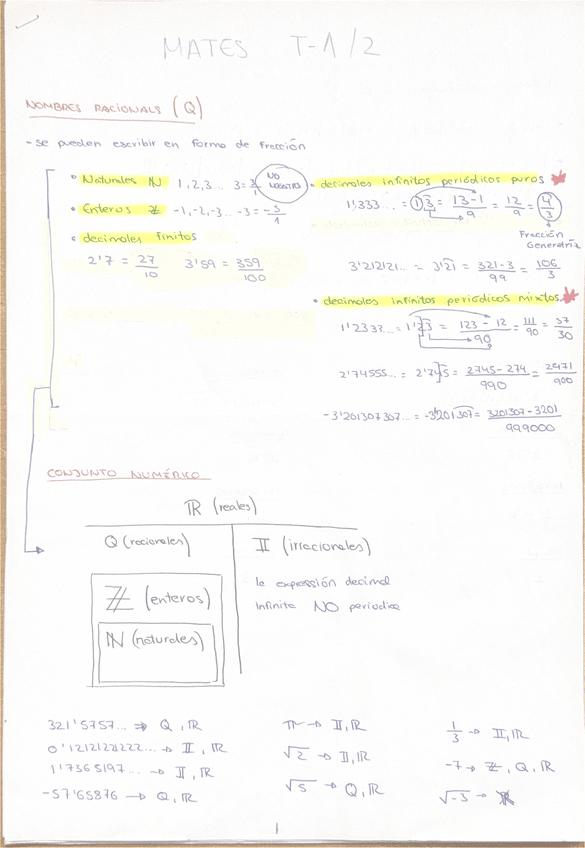 MATES T-1/2
NOMBRES RACIONALS (Q)
- se pueden escribir en forma de fracción
• Naturales ℕ 1, 2, 3... 3 = 3/1 NO NEGATIUS
• Enteros ℤ -1, -2, -3... -3 = -3/1
• decimales finitos
2'7 = 27/10 3'59 = 359/100
• decimales infinitos periódicos puros
1'333... = 1'3 = 13-1/9 = 12/9 = 4/3
Fracción
Generatriz
3'212121... = 3'21 = 321-3/99 = 106/3
• decimales infinitos periódicos mixtos
1'2333... = 1'23 = 123-12/90 = 111/90 = 37/30
2'74555... = 2'745 = 2745-274/990 = 2471/900
-3'201307307... = -3'201307 = 3201307-3201/999000
CONJUNTO NUMÉRICO
ℝ (reales)
Q (racionales)
𝕀 (irracionales)
ℤ (enteros)
ℕ (naturales)
la expresión decimal
infinita NO periodica
321'5757... → Q, ℝ
0'1212122222... → 𝕀, ℝ
1'7365197... → 𝕀, ℝ
-57'65876 → Q, ℝ
π → 𝕀, ℝ
√2 → 𝕀, ℝ
√5 → Q, ℝ
1/3 → 𝕀, ℝ
-7 → ℤ, Q, ℝ
√-3 → ℝ
1